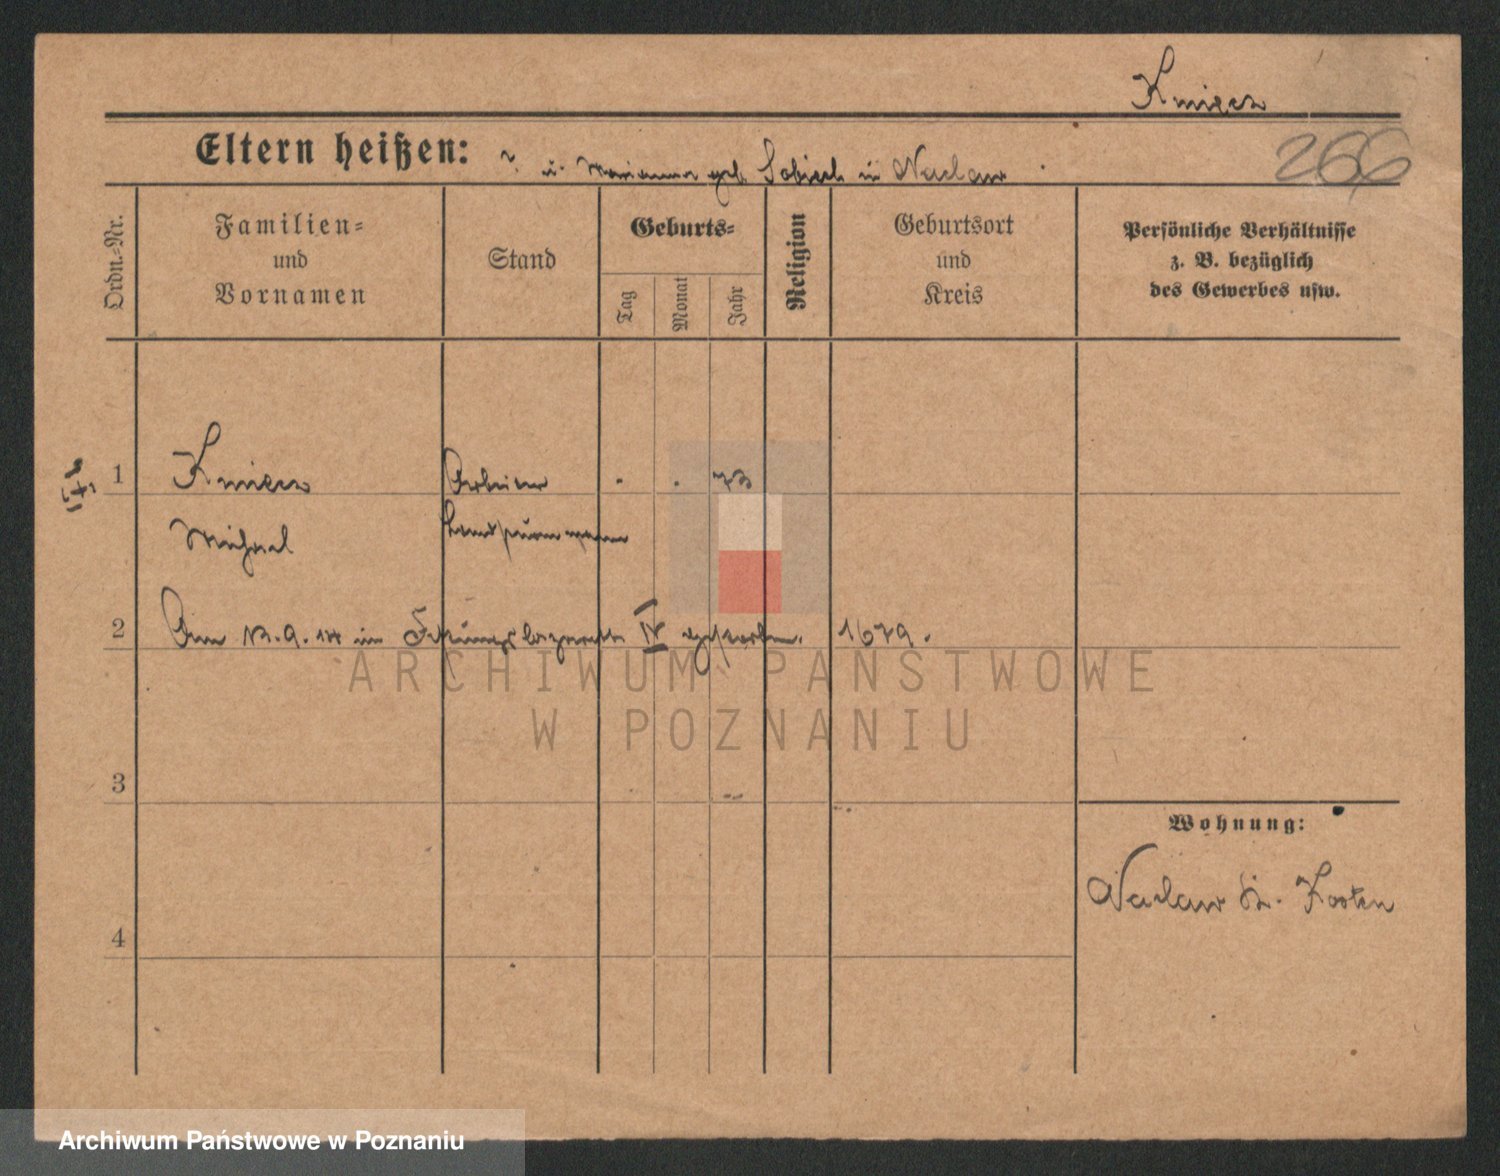 Kmiecz
266
Eltern heißen: ? u. Marianna geb. Sobiech in Naclaw
Ordn.-Nr.
Familien-
und
Vornamen
Stand
Geburts-
Tag
Monat
Jahr
Religion
Geburtsort
und
Kreis
Persönliche Verhältnisse
z. B. bezüglich
des Gewerbes usw.
1 Kmiecz Arbeiter . . 73
Michael Landsturmmann
2 Am 12.9.14 im Festungslazarett IV gestorben. 1679.
ARCHIWUM PAŃSTWOWE
W POZNANIU
3
Wohnung:
Naclaw Kr. Kosten
4
Archiwum Państwowe w Poznaniu